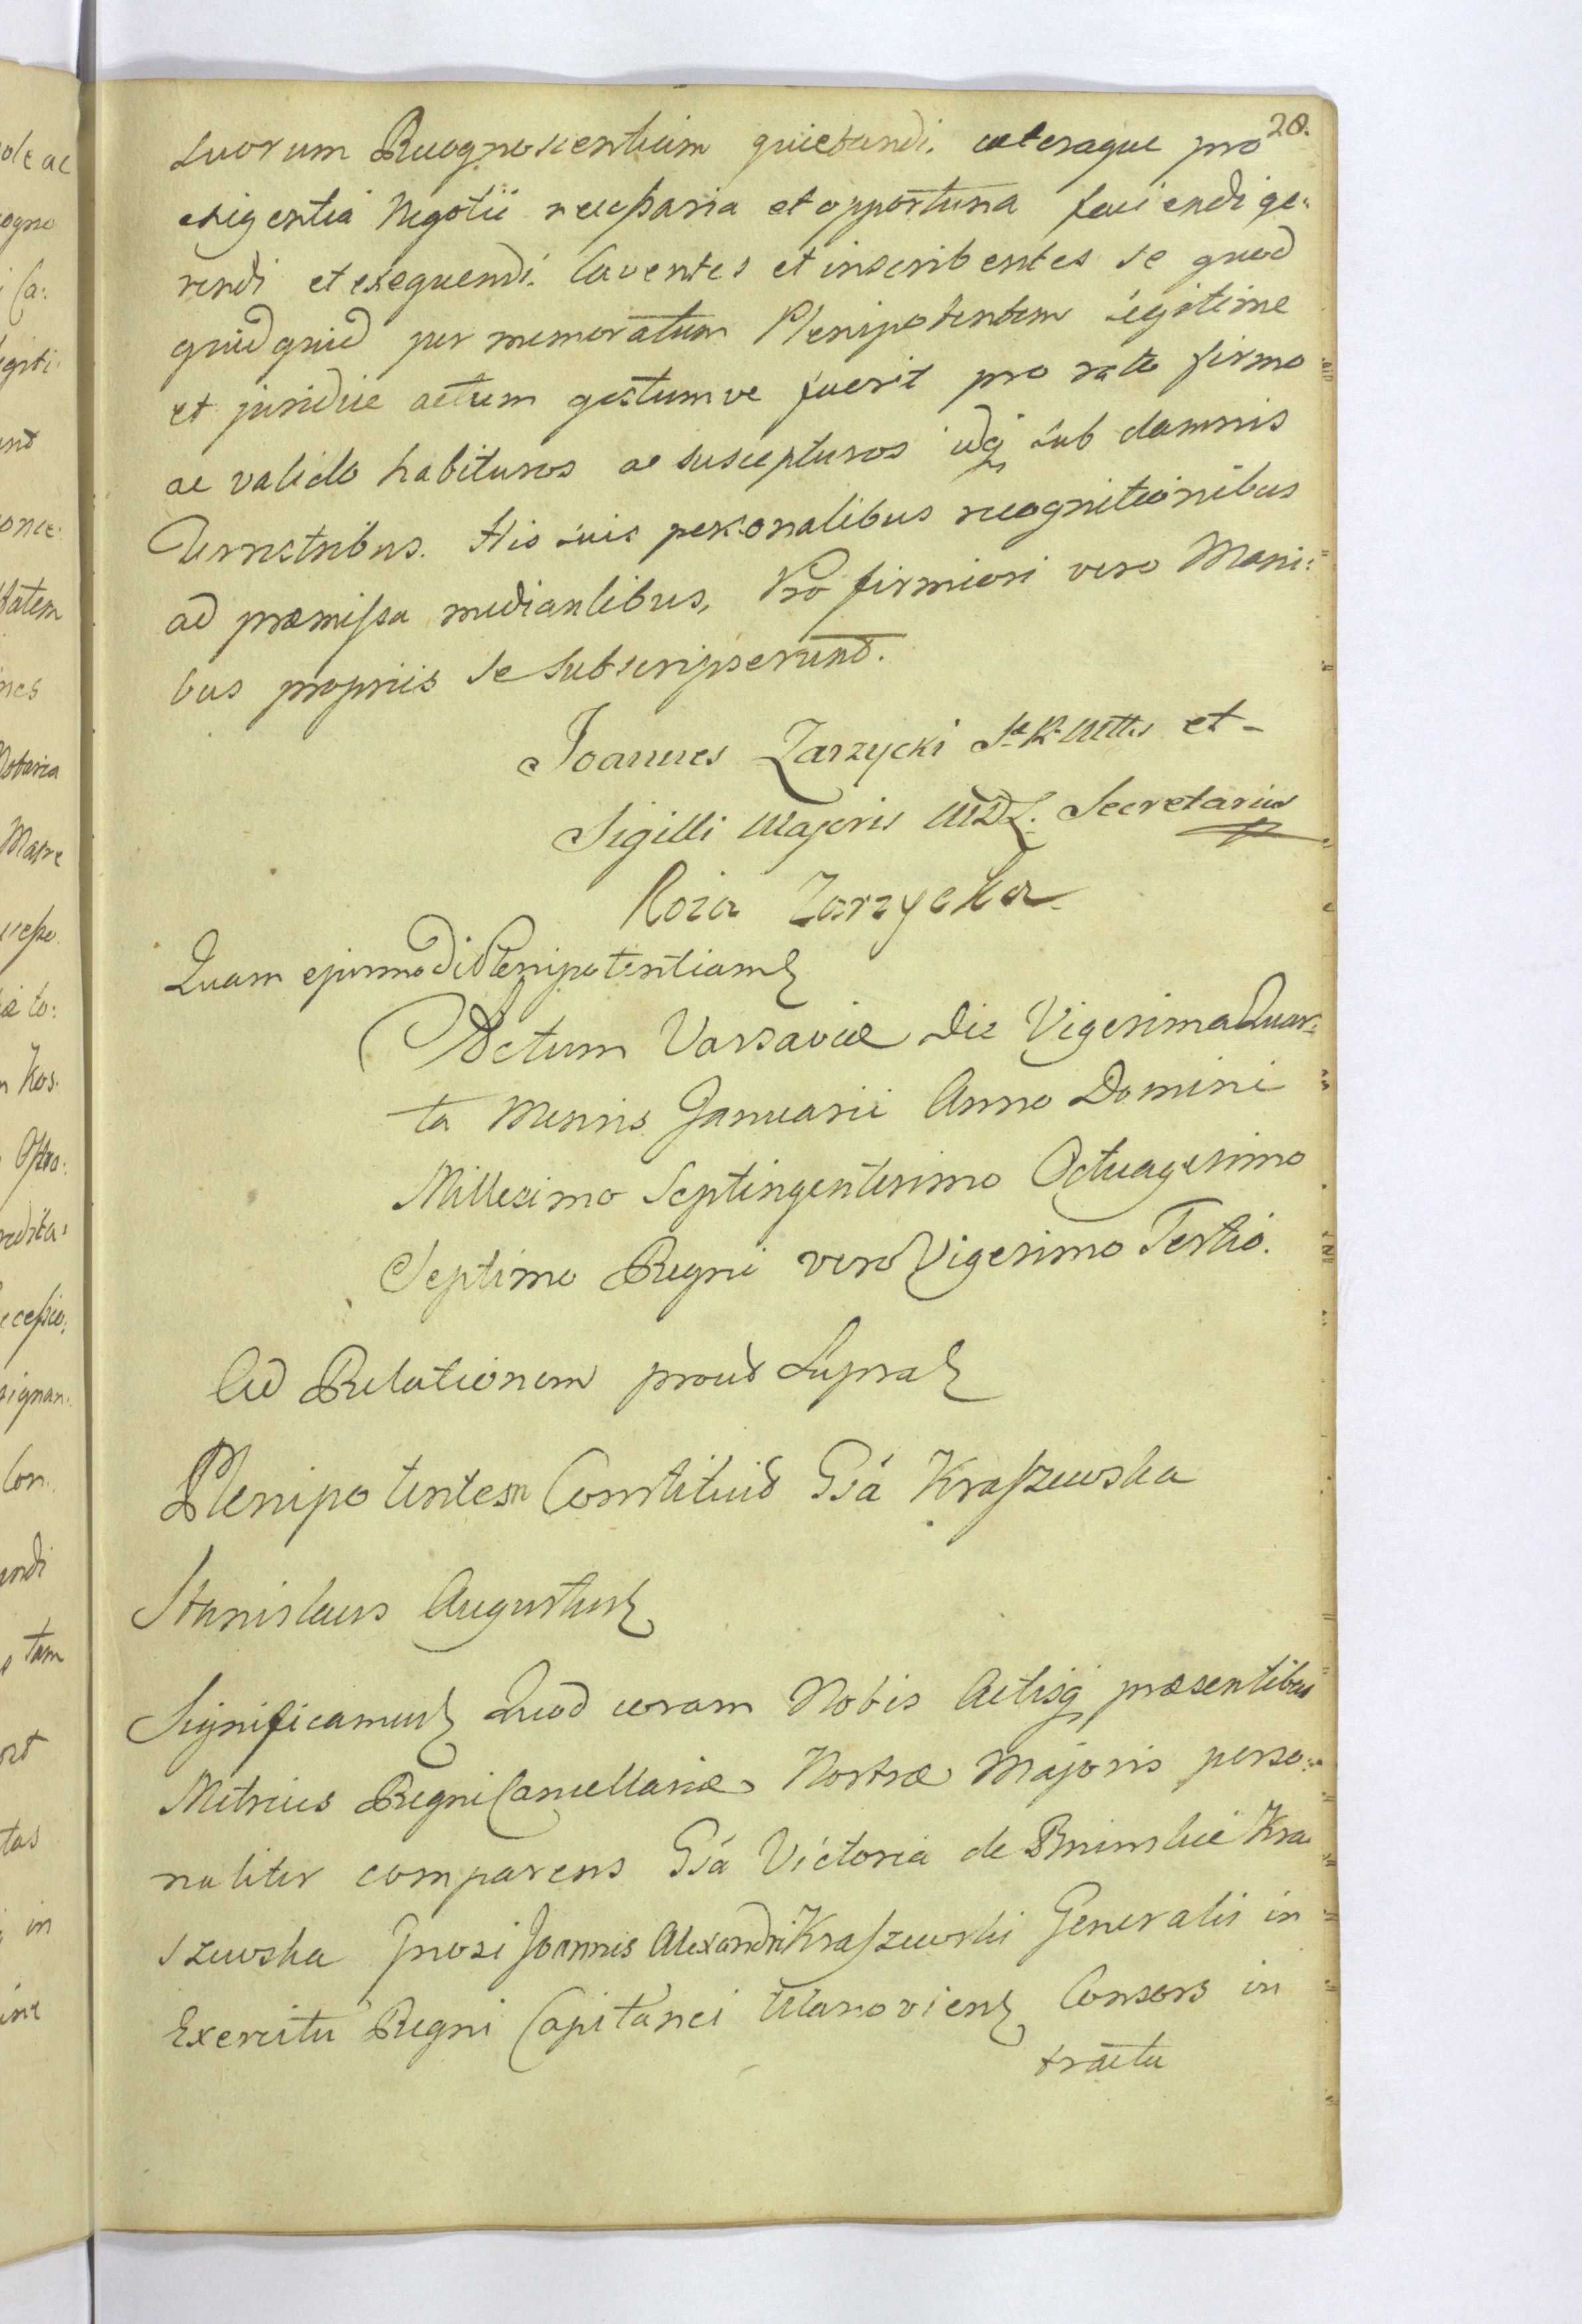 28.
suorum Recognoscentium quietandi. cæteraque pro
exigentia Negotii necessaria et opportuna faciendi ge:
rendi et exequendi. Caventes et inscribentes se quod
quidquid per memoratum Plenipotentem legitime
et juridice actum gestumve fuerit pro rato firmo
ac valido habituros ac suscepturos idq sub damnis
Terrestribus. His suis personalibus recognitionibus
ad præmissa mediantibus, Pro firmiori vero Mani:
bus propriis se subscripserunt.
Joannes Zarzycki et
Sigilli Majoris MDL. Secretarius
Rozia Zarzycka
Quam ejusmodi Plenipotentiam
Actum Varsaviæ Die Vigesima Quar:
ta Mensis Januarii Anno Domini
Millesimo Septingentesimo Octuagesimo
Septimo Regni vero Vigesimo Tertio.
Ad Relationem prout Supra
Plenipotentem Constituit Gsa Kraszewska
Stanislaus Augustus
Significamus Quod coram Nobis Actisq præsentibus
Metrices Regni Cancellariæ Nostræ Majoris perso:
naliter comparens Gsa Victoria de Bninskie Kra
szewska Gnosi Joannis Alexandri Kraszewski Generalis in
Exercitu Regni Capitanei Ulanoviens Consors in
tractu